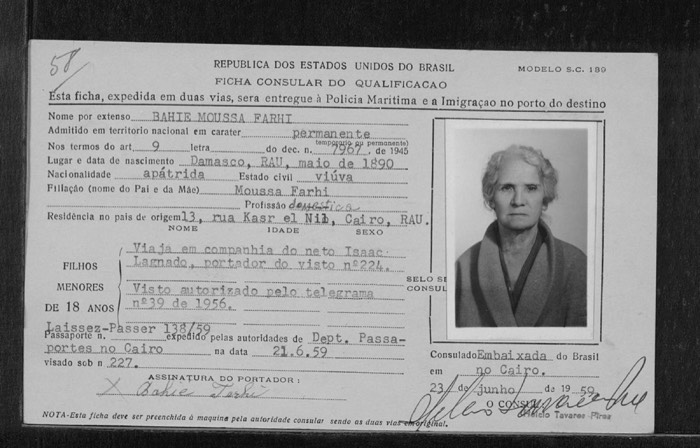 58
REPUBLICA DOS ESTADOS UNIDOS DO BRASIL
MODELO S.C. 139
FICHA CONSULAR DO QUALIFICAÇAO
Esta ficha, expedida em duas vias, sera entregue à Policia Maritima e a Imigraçao no porto do destino
Nome por extenso BAHIE MOUSSA FARHI
Admitido em territorio nacional em carater permanente
(temporario ou permanente)
Nos termos do art. 9 letra do dec. n. 7967, de 1945
Lugar e data de nascimento Damasco, RAU, maio de 1890
Nacionalidade apátrida Estado civil viúva
Filiação (nome do Pai e da Mãe) Moussa Farhi
Profissão doméstica
Residência no pais de origem 13, rua Kasr el Nil, Cairo, RAU.
NOME IDADE SEXO
FILHOS MENORES DE 18 ANOS
Viaja em companhia do neto Isaac
Lagnado, portador do visto nº224.
Visto autorizado pelo telegrama
nº39 de 1956.
SELO SE
CONSUL
Laissez-Passer 138/59
Passaporte n. expedido pelas autoridades de Dept. Passa-
portes no Cairo na data 21.6.59
visado sob n 227.
ASSINATURA DO PORTADOR:
X Bahie Ferhi
Consulado Embaixada do Brasil
em no Cairo.
23 de junho de 1959
O CONSUL
Helcio Tavares Pires
NOTA-Esta ficha deve ser preenchida à maquina pela autoridade consular sendo as duas vias em original.